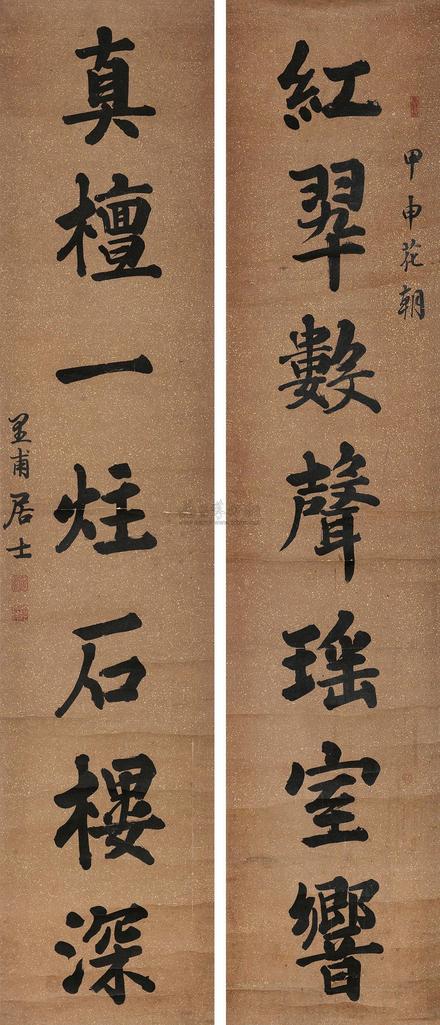 甲申花朝
紅翠數聲瑶室響
真檀一炷石樓深
里甫居士